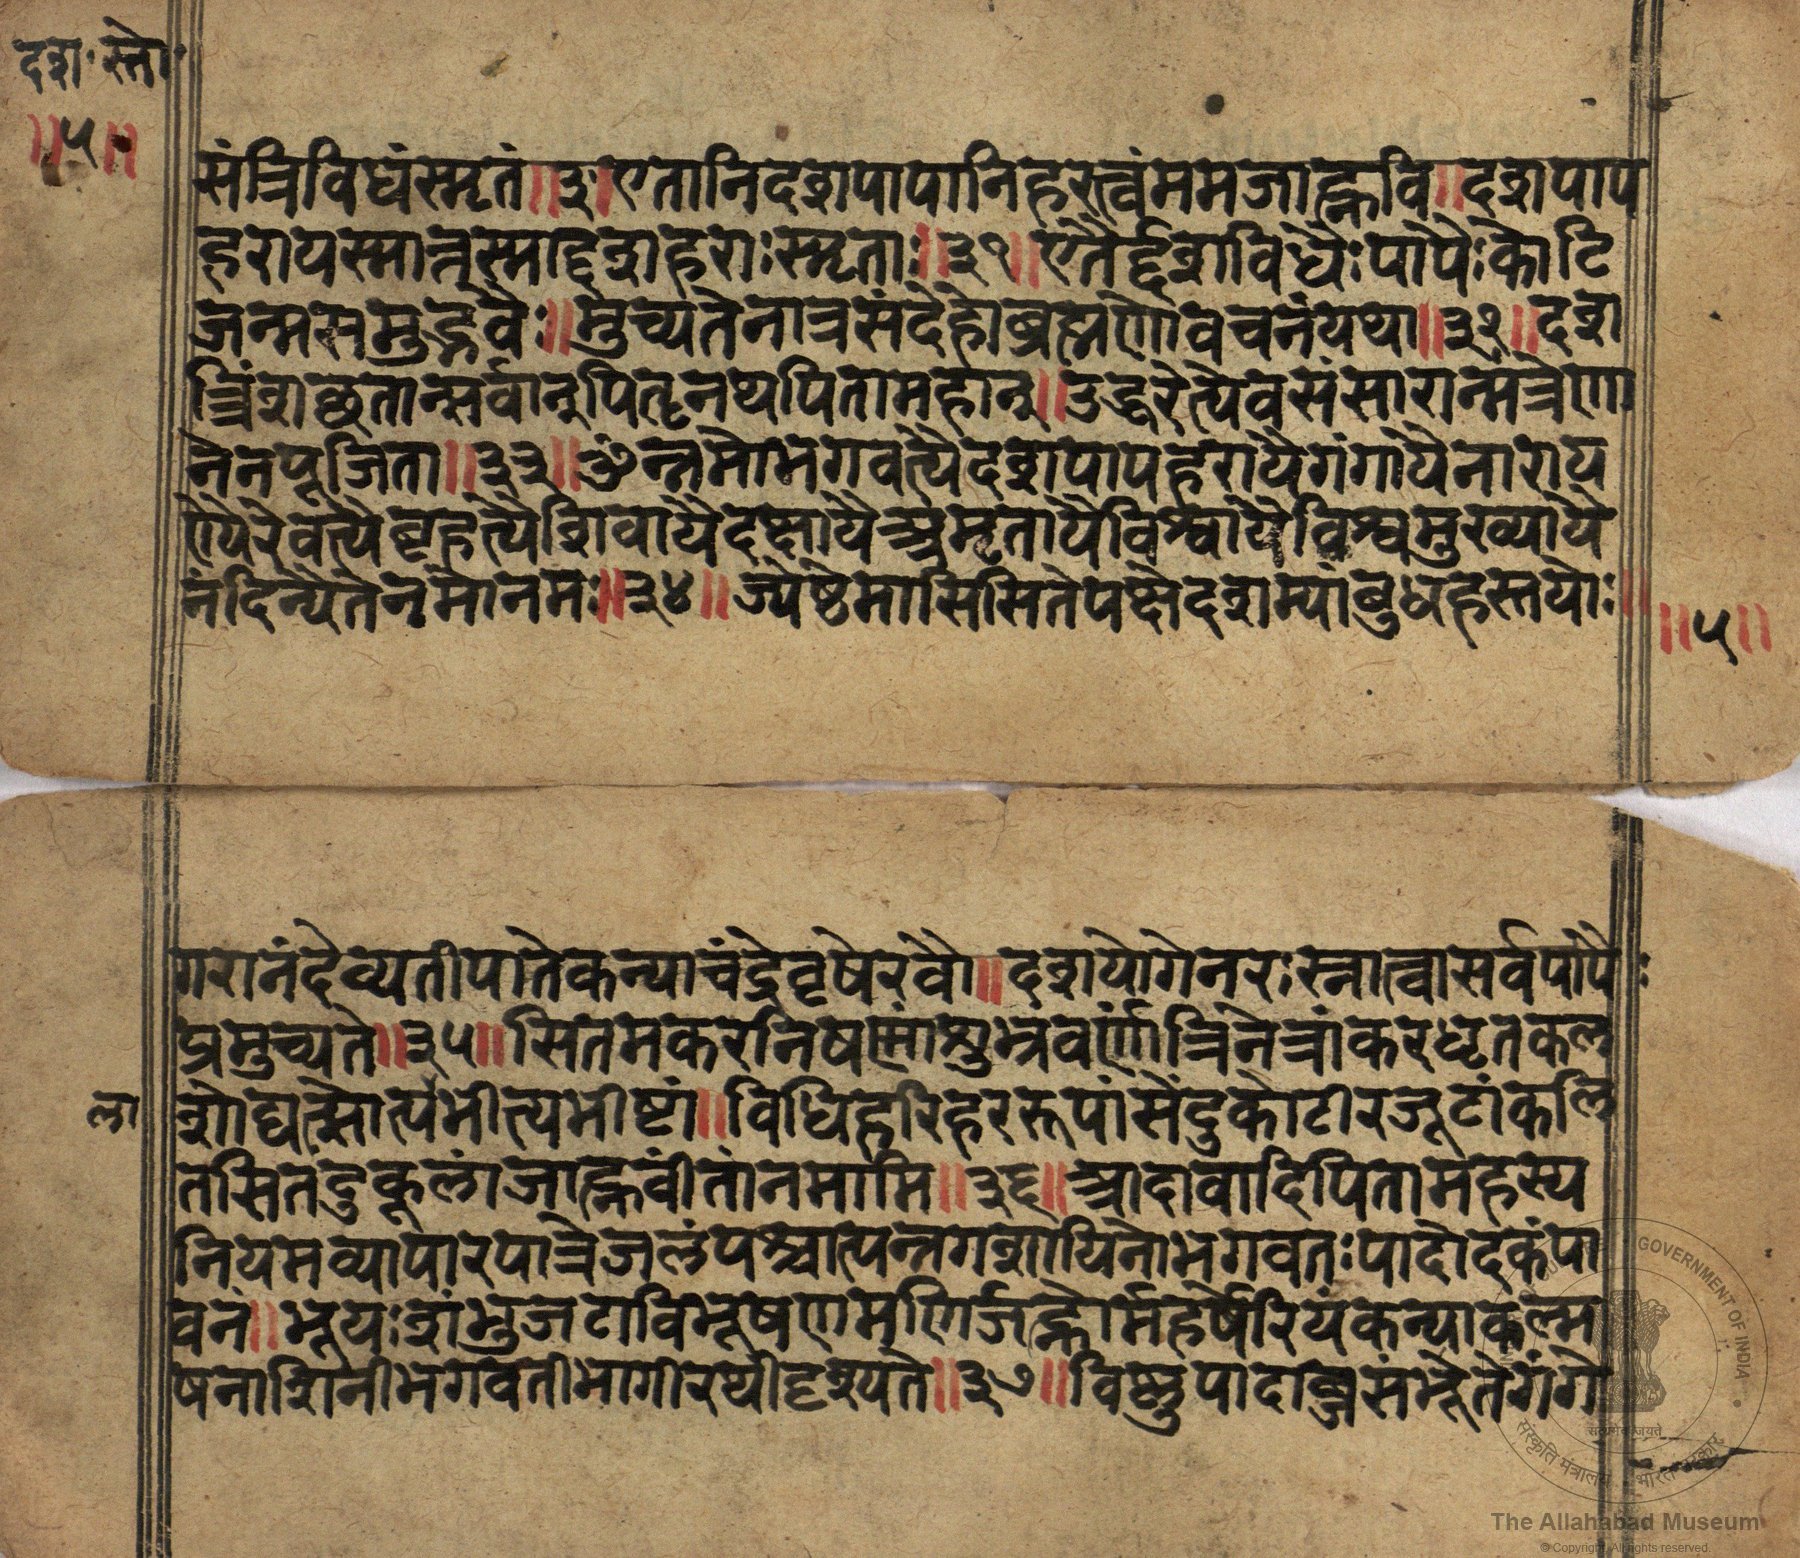 दश॰ स्तो॰
॥५॥
संत्रिविधंस्मृतं॥३॰॥एतानिदशपापानिहरत्वंममजाह्नवि॥दशपाप
हरायस्मात्तस्माद्दशहराःस्मृताः॥३१॥एतैर्द्दशविधैःपापैःकोटि
जन्मसमुद्भवैः॥मुच्यतेनात्रसंदेहोब्रह्मणोवचनंयथा॥३२॥दश
त्रिंशछतान्सर्वान्पितॄनथपितामहान्॥उद्धरत्येवसंसारान्मंत्रेणा
नेनपूजिता॥३३॥ॐन्नमोभगवत्यैदशपापहरायैगंगायैनाराय
ण्यैरेवत्यैबृहत्यैशिवायैदक्षायैअमृतायैविश्वायैविश्वमुख्यायै
नंदिन्यैतेनमोनमः॥३४॥ज्येष्ठेमासिसितेपक्षेदशम्यांबुधहस्तयोः॥
॥५॥
गरानंदेव्यतीपातेकन्याचंद्रेवृषेरवौ॥दशयोगेनरःस्नात्वासर्वपापैः
प्रमुच्यते॥३५॥सितमकरनिषण्णांशुभ्रवर्णांत्रिनेत्रांकरधृतकल
शोद्यत्सोत्पभीत्यभीष्टां॥विधिहरिहररूपांसेंदुकोटीरजूटांकलि
ला
तसितदुकूलांजाह्नवींतांनमामि॥३६॥आदावादिपितामहस्य
नियमव्यापारपात्रेजलंपश्चात्पन्नगशायिनोभगवतःपादोदकंपा
वनं॥भूयःशंभुजटाविभूषणमणिर्जह्नोर्महर्षेरियंकन्याकल्म
षनाशिनीभगवतीभागीरथीदृश्यते॥३७॥विष्णुपादाब्जसंभूतेगंगे
GOVERNMENT OF INDIA
सत्यमेव जयते
संस्कृति मंत्रालय
भारत सरकार
The Allahabad Museum
© Copyright, All rights reserved.